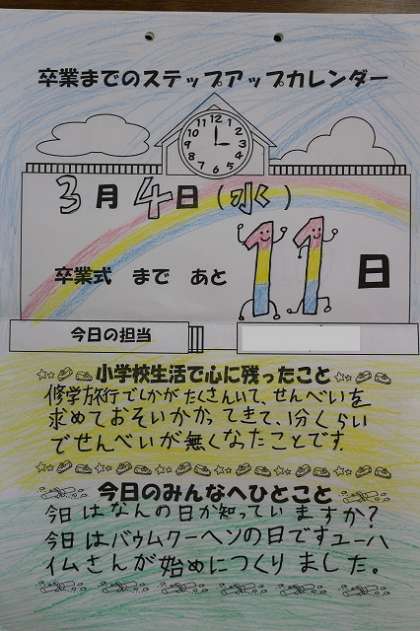 卒業までのステップアップカレンダー
12 1 2 3 4 5 6 7 8 9 10 11
3月4日(水)
卒業式 まで あと 11日
今日の担当
小学校生活で心に残ったこと
修学旅行でしかがたくさんいて、せんべいを
求めておそいかかってきて、1分くらい
でせんべいが無くなったことです。
今日のみんなへひとこと
今日はなんの日か知っていますか?
今日はバウムクーヘンの日ですユーハ
イムさんが始めにつくりました。